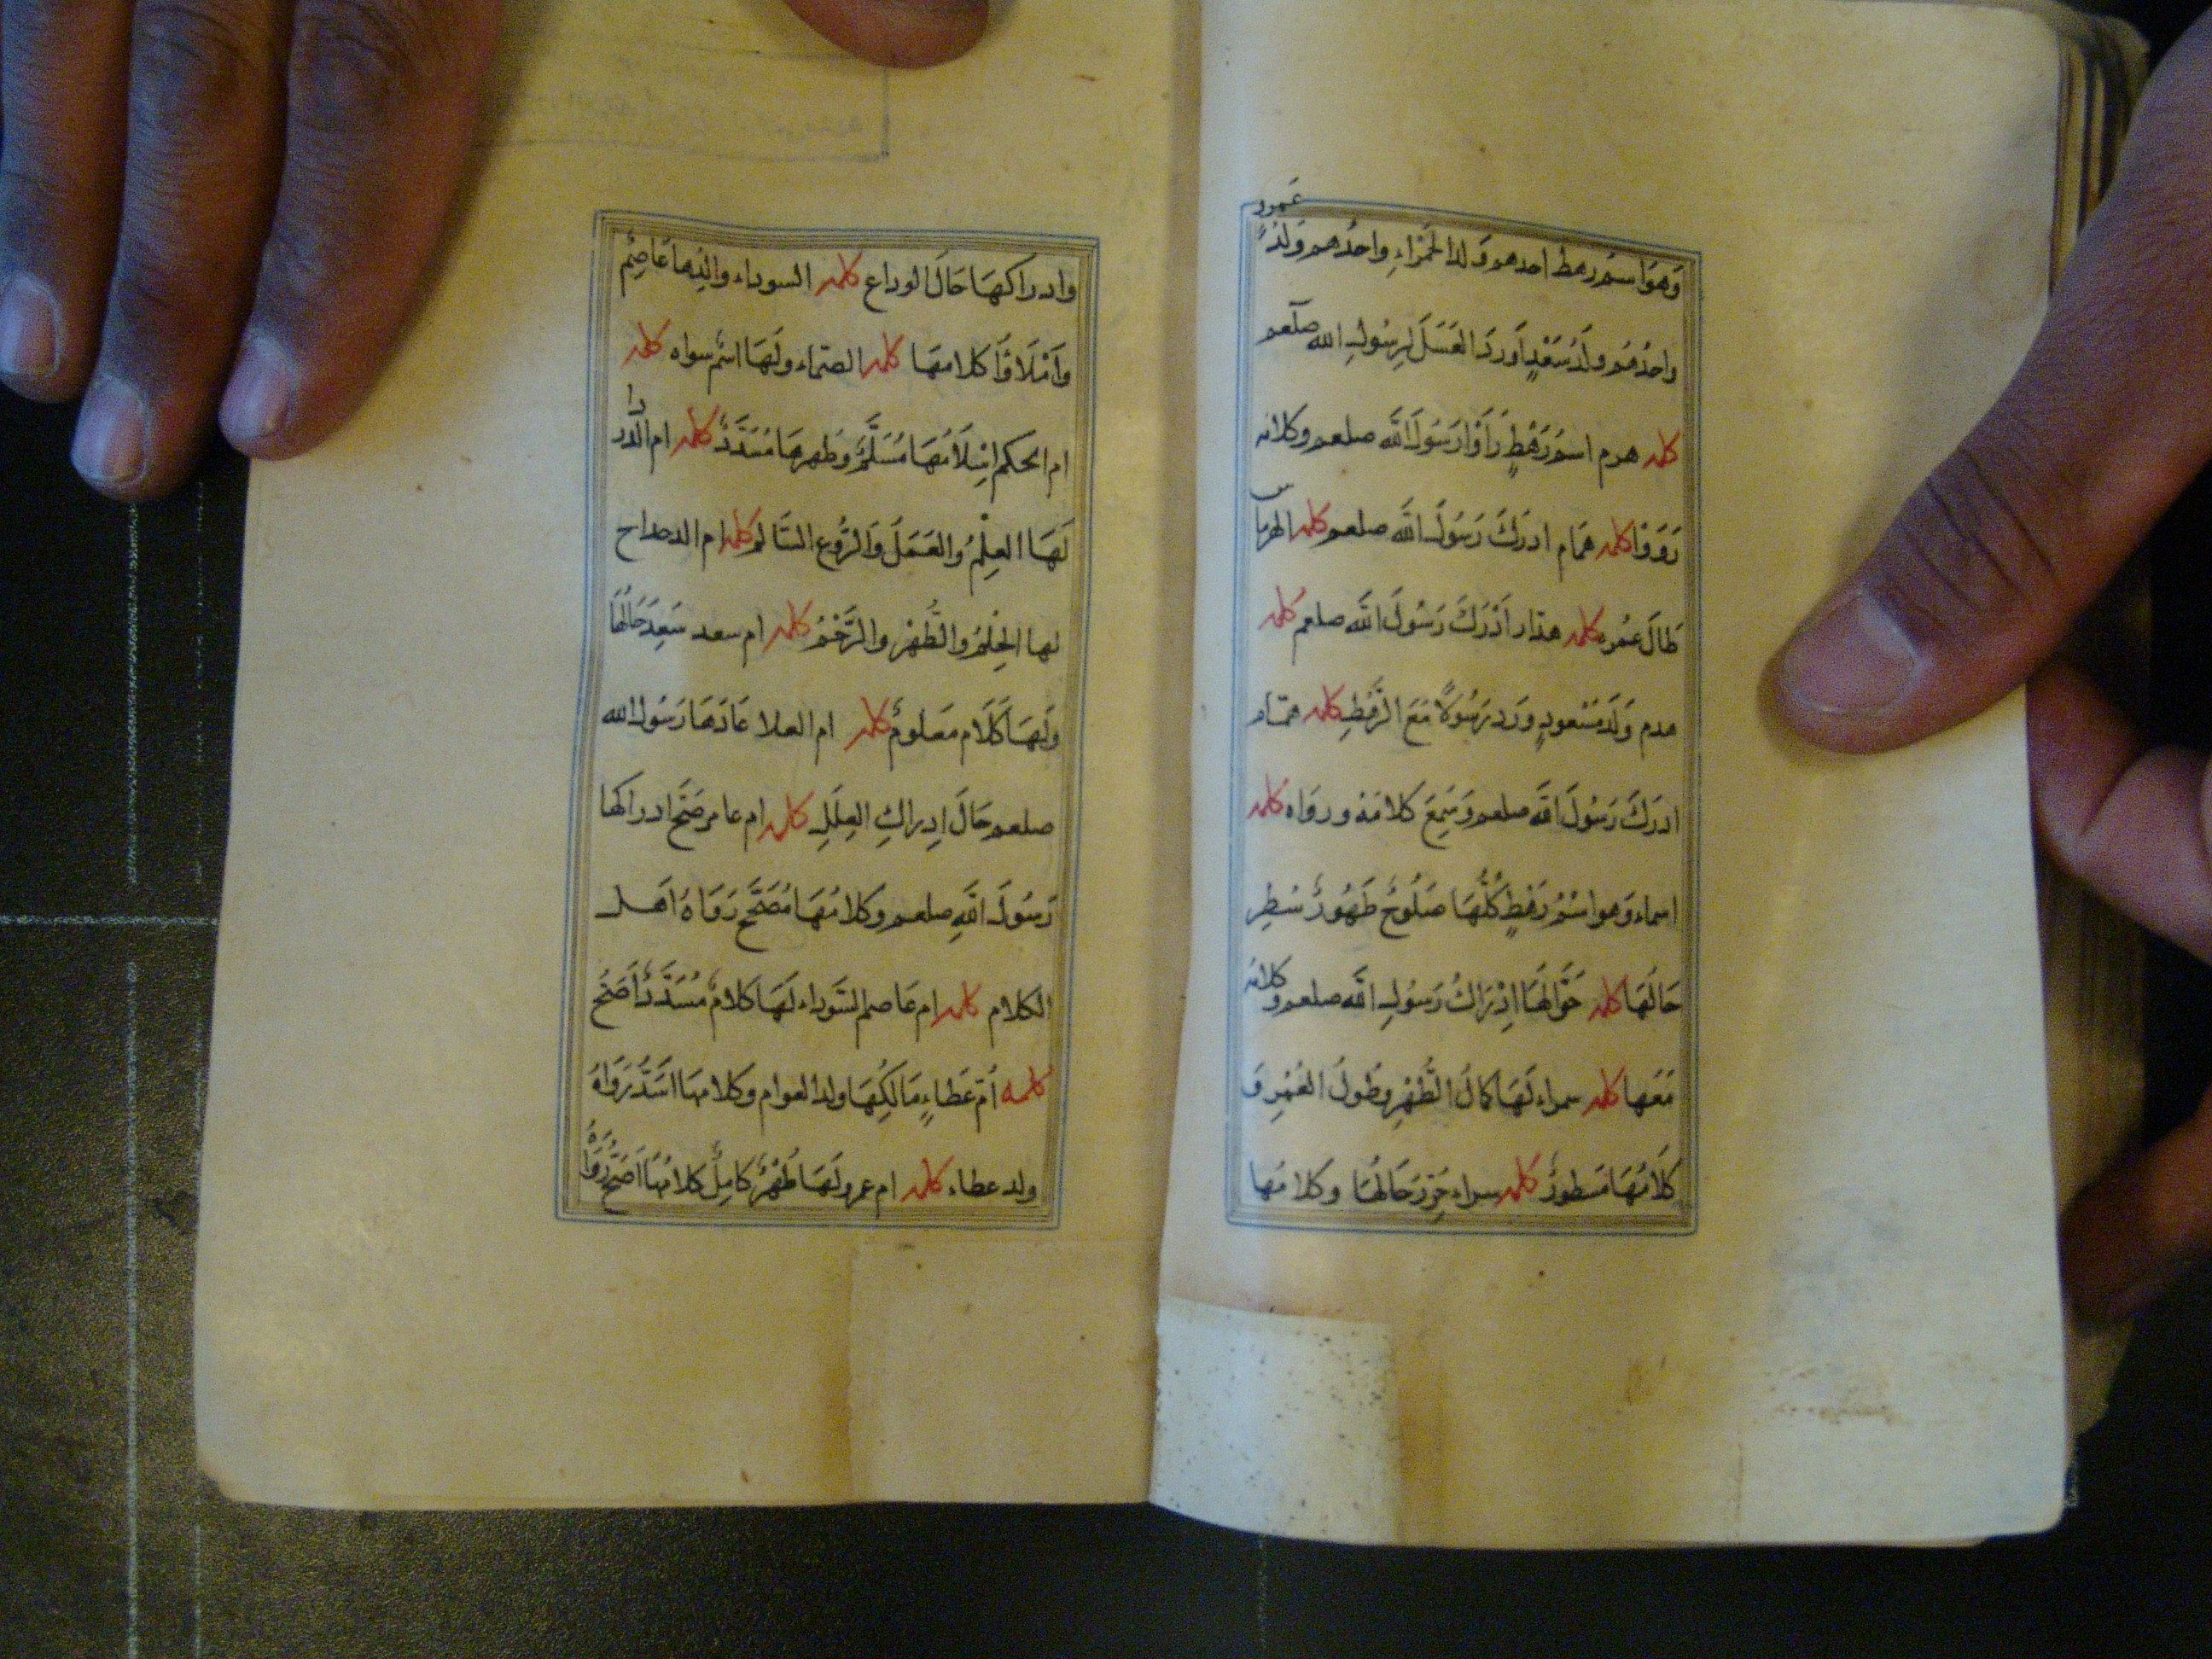 وَهوَ اسمُ رهط احدهم ولد الحَمْراءِ واحدُهم وَلدُ عمرو
واحدُهُم ولَدُ سَعْدٍ اَوردَ العَسَلَ لِرسُولِ الله صلعم
كلمه هرم اسمُ رَهْطٍ رَأَوْا رَسُولَ اللّٰه صلعم وكلامه
رَوَوْا كلمه همّام ادرَكَ رَسُولَ اللّٰه صلعم كلمه الهرماس
طَالَ عمُره كلمه هدّار اَدْرَكَ رَسُولَ اللّٰه صلعم كلمه
هدم وَلَد مَسْعودٍ ورَد رَسُولًا مَعَ الرَّهْطِ كلمه همّام
ادرَكَ رَسُولَ اللّٰه صلعم وَسَمِعَ كَلامَهُ وروَاه كلمه
اسماء وَهو اسْمُ رَهْطٍ كُلُّهَا صَلُوحٌ طَهُورٌ سُطِر
حَالُهَا كلمه حَوَّا لَهَا اِدْرَاكُ رَسُولِ اللّٰه صلعم وكلامه
مَعَها كلمه سمراء لَهَا كمَالُ الطُّهْرِ وطُولُ العُمْرِ وَ
كَلَامُهَا مَسطورٌ كلمه سراء حُرِّرَ حَالُهَا وكلامُها
وادراكهَا حَالَ الوداع كلمه السوداء والدُها عَاصِم
وَاَمْلَاوَا كلامهَا كلمه الصمّاء ولَهَا اسْمٌ سواه كلمه
ام الحكم اِسْلَامُهَا مُسَلَّمٌ وطُهرها مُسَدَّدٌ كلمه ام الدردا
لَهَا العِلْمُ والعَمَلُ وَالرَّوع السَّالم كلمه ام الدحداح
لها الحِلْمُ والطُّهْرُ والرَّحْمُ كلمه ام سعد سَعِدَ حَالُهَا
ولَهَا كَلَام مَعلومٌ كلمه ام العلا عَادَهَا رَسُولُ الله
صلعم حَالَ اِدراكِ العِلَلِ كلمه ام عامر صَحَّ ادراكها
رَسُولَ اللّٰهِ صلعم وكلامُهَا مُصَحَّحٌ رَوَاهُ اَهل
الكلام كلمه ام عَاصم السَّوداء لَهَا كلامٌ مُسَدَّدٌ اَصَحُّ
كلمه اُمّ عَطاءٍ مَالِكُهَا ولد العوام وكلامها اسَدُّ رَوَاهُ
ولد عطاء كلمه ام عمرو لَهَا طُهْرٌ كامِلٌ كلامُهَا اَصَحُّ رَوَاهُ